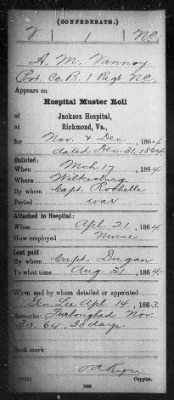 (CONFEDERATE.)
V 1 N.C.
A. M. Vannoy
Pvt. Co. B. 1 Regt N.C.
Appears on
Hospital Muster Roll
of Jackson Hospital,
Richmond, Va.,
for Nov. & Dec 1864
dated Dec. 31, 1864
Enlisted:
When Mch 17 186
Where Wilkesburg
By whom Capt.
Period war
Attached to Hospital:
When Apl. 21 1864
How employed Nurse
Last paid:
By whom Capt. Dugan
To what time Aug 31 1864
When and by whom detailed or appointed
Gen Lee Apl. 14 186
Remarks: Furloughed Nov.
30. 64. 30 days.
Book mark:
Copyist.